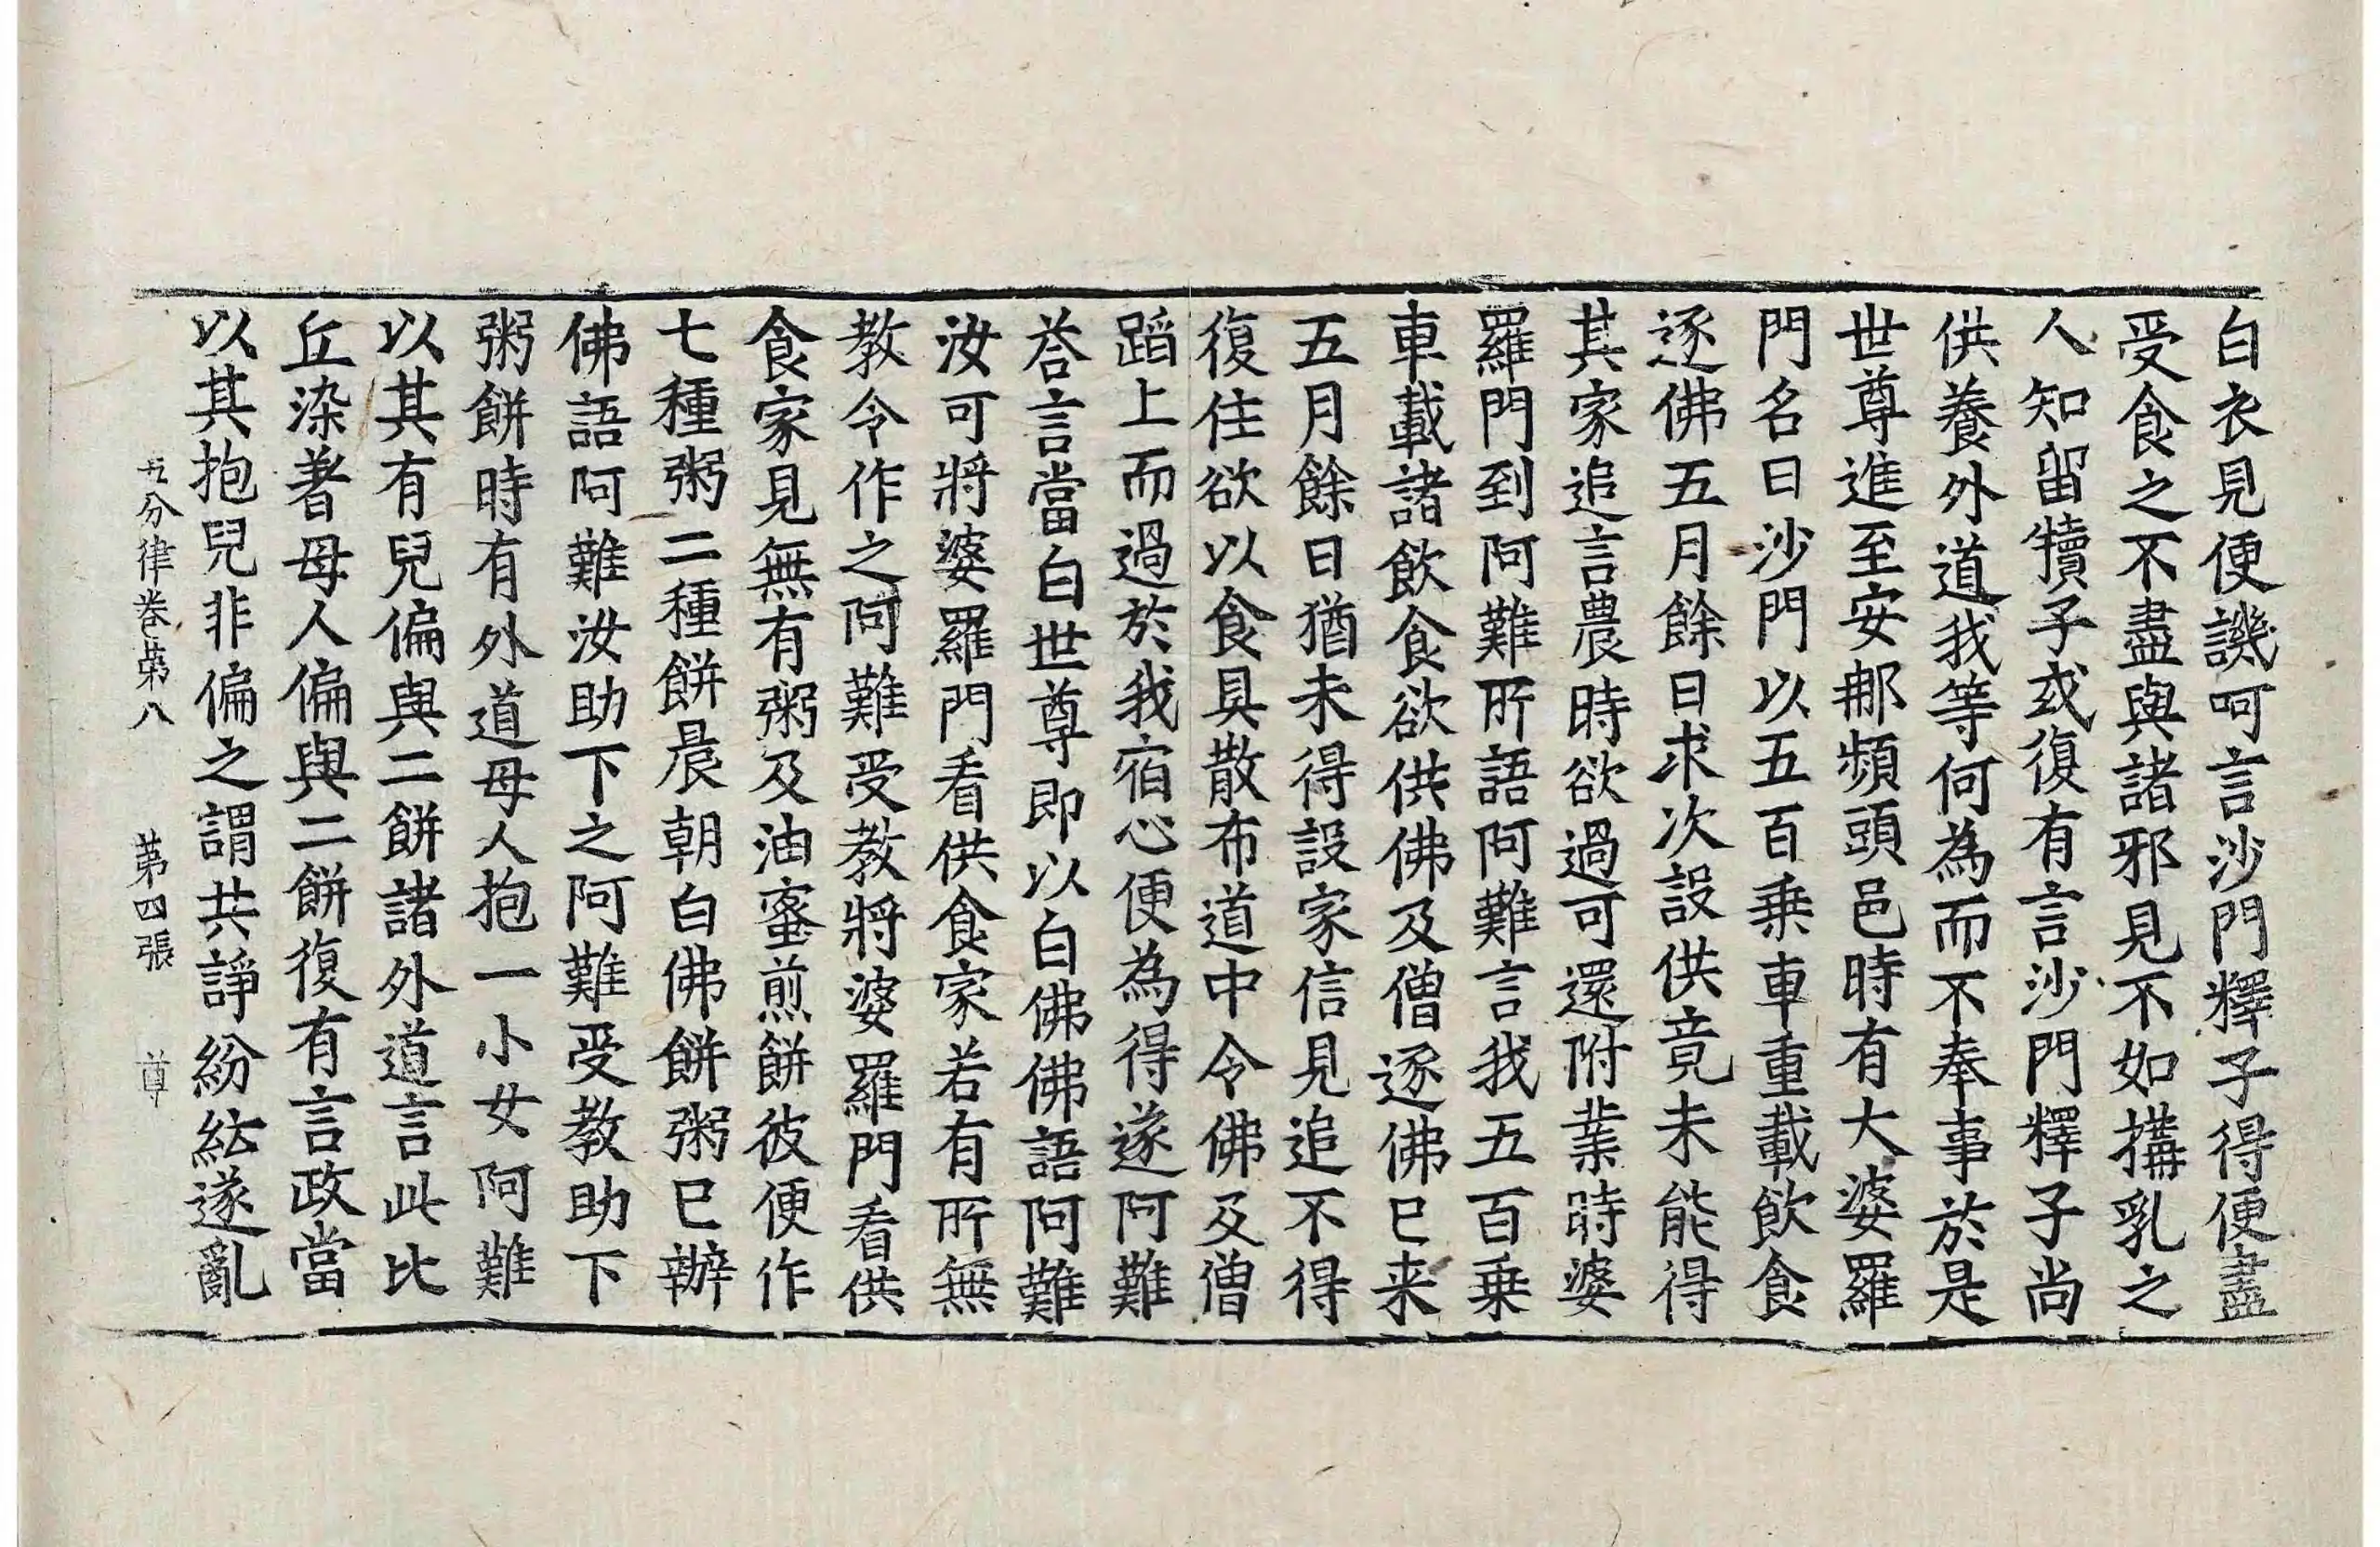 白衣見便譏呵言沙門釋子得便盡
受食之不盡與諸邪見不如搆乳之
人知留犢子或復有言沙門釋子尚
供養外道我等何為而不奉事於是
世尊進至安那頻頭邑時有大婆羅
門名曰沙門以五百乗車重載飲食
逐佛五月餘日求次設供竟未能得
其家追言農時欲過可還附業時婆
羅門到阿難所語阿難言我五百乗
車載諸飲食欲供佛及僧逐佛已来
五月餘日猶未得設家信見追不得
復住欲以食具散布道中令佛及僧
蹈上而過於我宿心便為得遂阿難
荅言當白世尊即以白佛佛語阿難
汝可將婆羅門看供食家若有所無
教令作之阿難受教將婆羅門看供
食家見無有粥及油蜜煎餅彼便作
七種粥二種餅晨朝白佛餅粥已辦
佛語阿難汝助下之阿難受教助下
粥餅時有外道母人抱一小女阿難
以其有兒偏與二餅諸外道言此比
丘染著母人偏與二餅復有言政當
以其抱兒非偏之謂共諍紛紜遂亂
五分律卷第八 第四張 尊